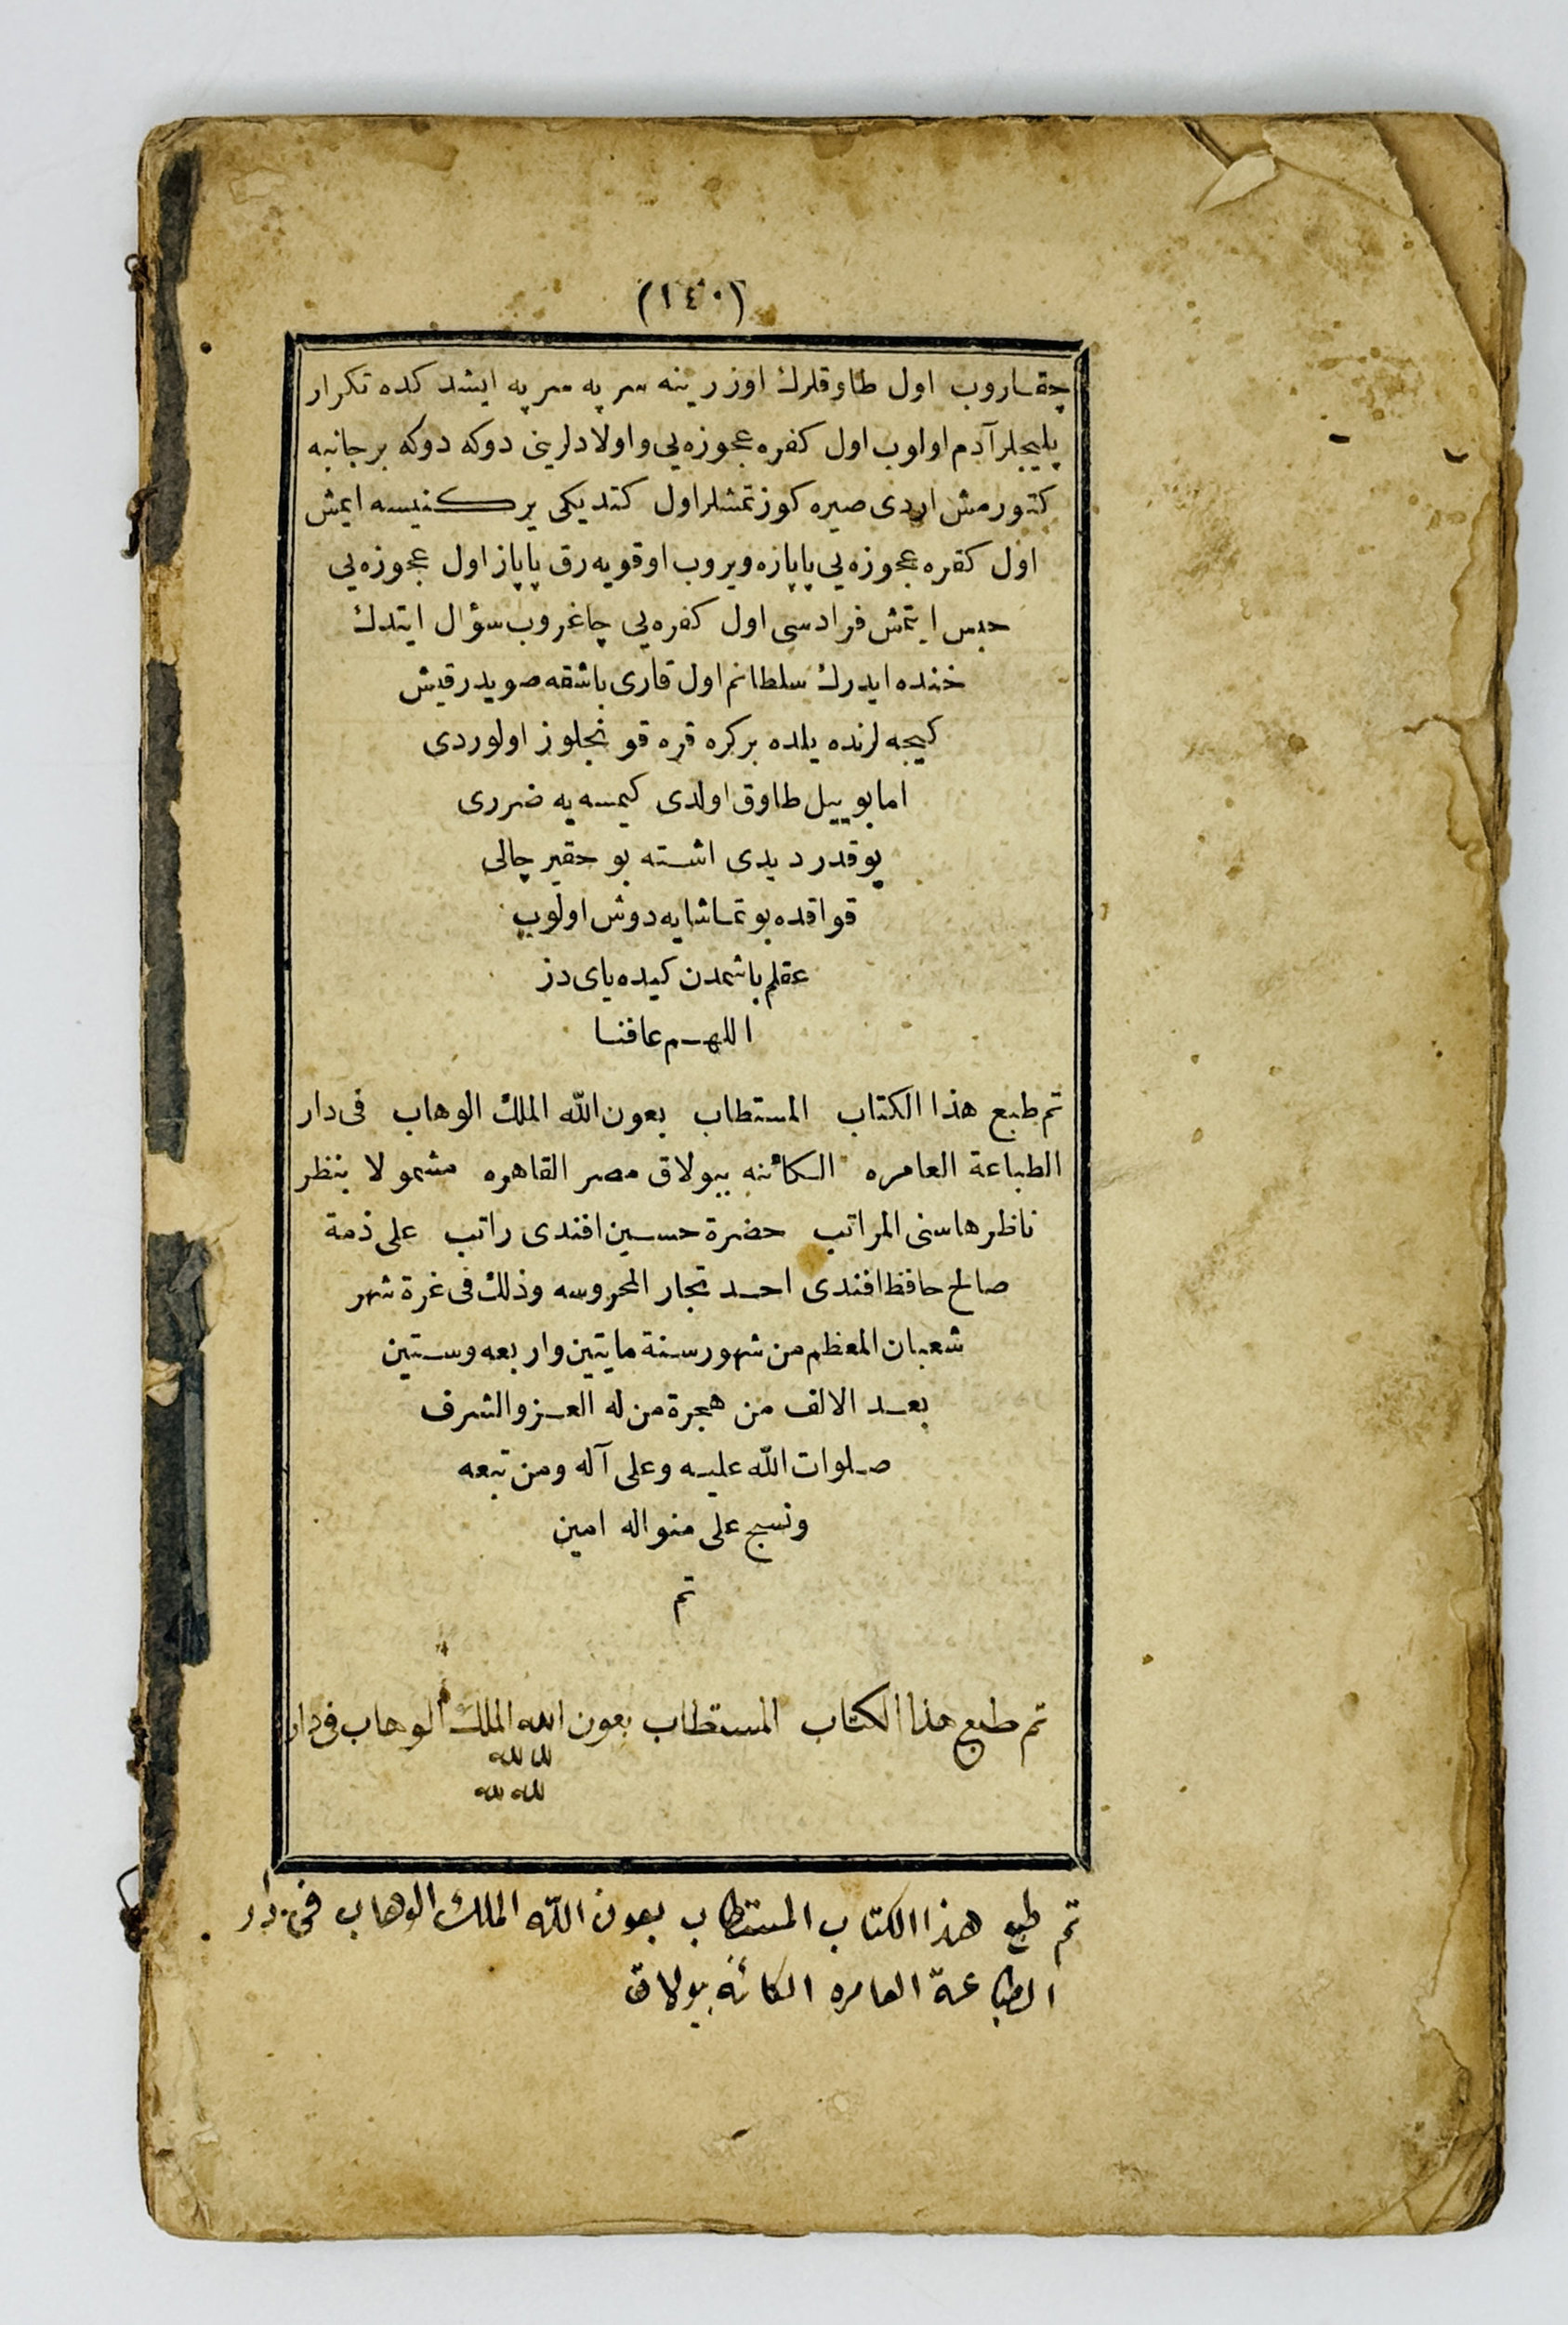 (١٤٠)
چقاروب اول طاوقلرك اوزرينه سرپه سرپه ايشدكده تكرار
پليجلر آدم اولوب اول كفره عجوزه يى و اولادلرينى دوكه دوكه بر جانبه
كتورمش اردى صيره كوزتمشلر اول كتديكى ير كنيسه ايمش
اول كفره عجوزه يى پاپازه ويروب اوقويه رق پاپاز اول عجوزه يى
حبس ايتمش فرادسى اول كفره يى چاغروب سؤال ايتدك
خنده ايدرك سلطانم اول قارى باشقه صويدر قيش
كيجه لرنده يلده بر كره قره قونجلوز اولوردى
اما بو ييل طاوق اولدى كيمسه يه ضررى
يوقدر ديدى اشته بو حقير چالى
قواقده بو تماشايه دوش اولوب
عقلم باشمدن كيده ياى دز
اللهم عافنا
تم طبع هذا الكتاب المستطاب بعون الله الملك الوهاب فى دار
الطباعة العامره الكائنه ببولاق مصر القاهره مشمولا بنظر
ناظرها سنى المراتب حضرة حسين افندى راتب على ذمة
صالح حافظ افندى احد تجار المحروسه وذلك فى غرة شهر
شعبان المعظم من شهور سنة مايتين واربعه وستين
بعد الالف من هجرة من له العز والشرف
صلوات الله عليه وعلى آله ومن تبعه
ونسج على منواله امين
تم
تم طبع هذا الكتاب المستطاب بعون الله الملك الوهاب فى دار
لله لله
لله لله
تم طبع هذا الكتاب المستطاب بعون الله الملك الوهاب فى دار
الطباعة العامره الكائنه ببولاق